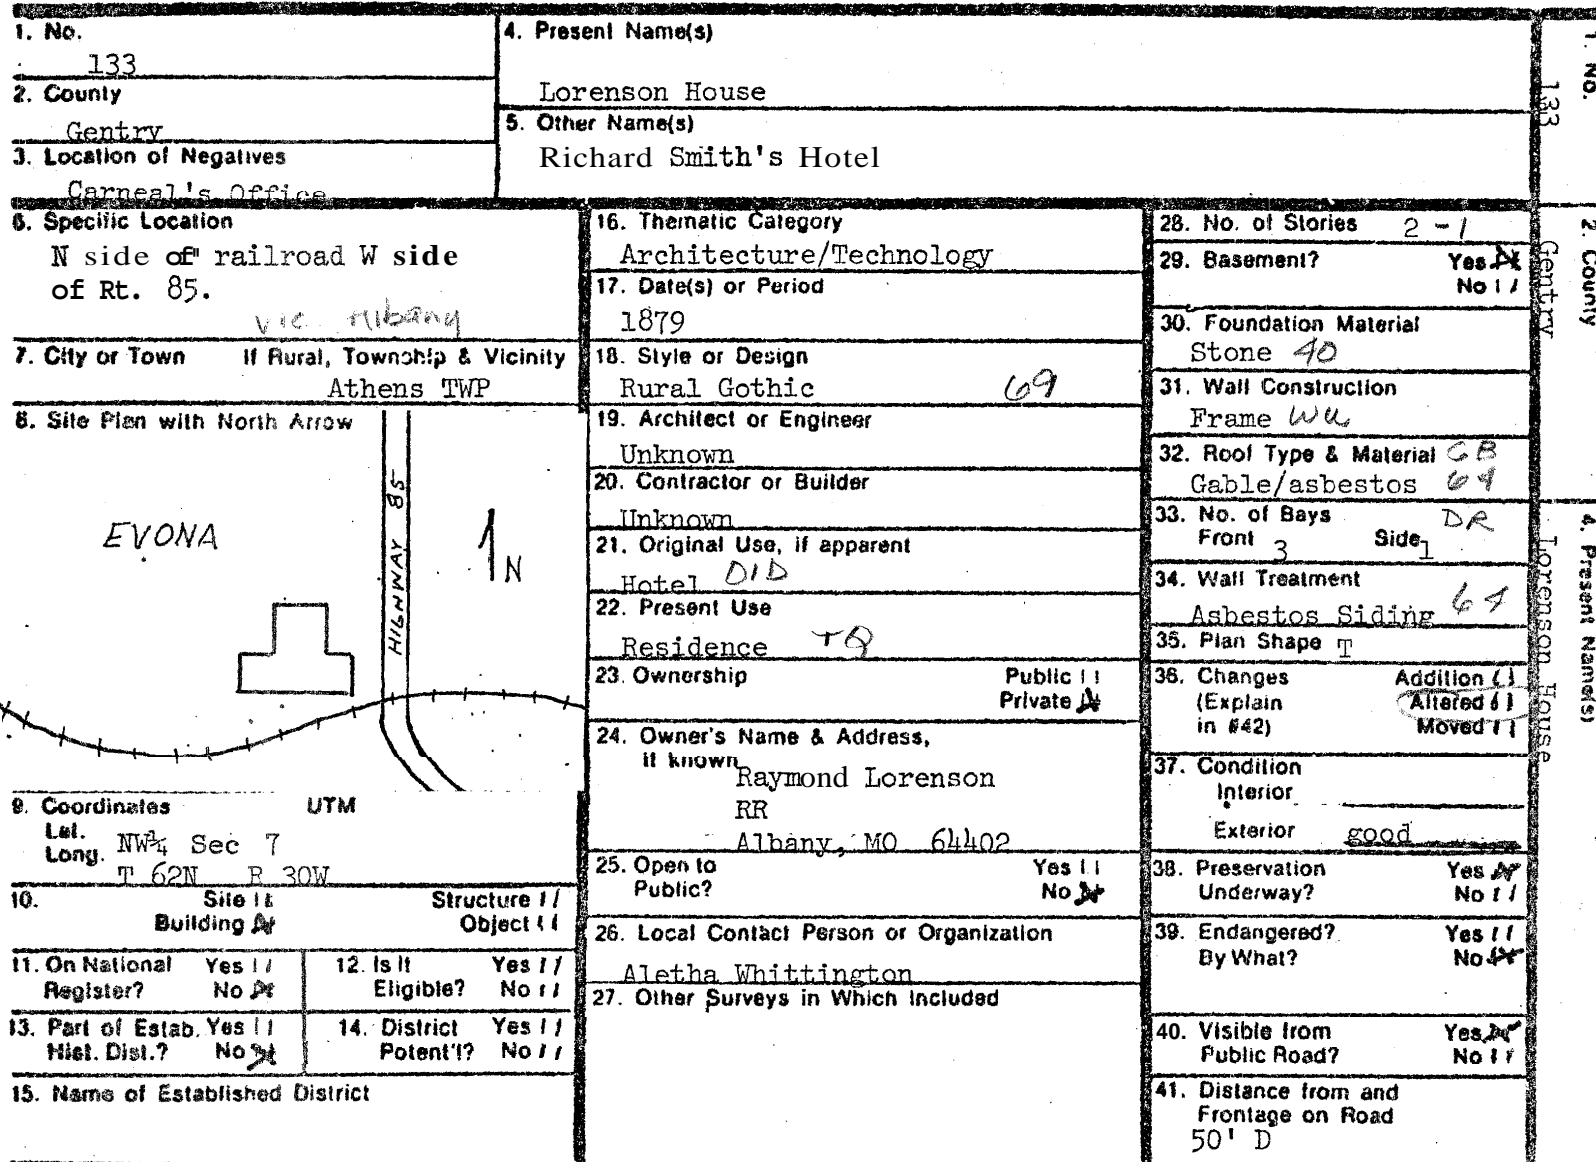 1. No.
133
2. County
Gentry
3. Location of Negatives
Carneal's Office
4. Present Name(s)
Lorenson House
5. Other Name(s)
Richard Smith's Hotel
6. Specific Location
N side of railroad W side
of Rt. 85.
vic Albany
7. City or Town If Rural, Township & Vicinity
Athens TWP
8. Site Plan with North Arrow
EVONA
HIGHWAY 85
N
9. Coordinates UTM
Lat.
Long.
NW¼ Sec 7
T 62N R 30W
10. Site
Structure
Building
Object
11. On National Register? Yes
No
12. Is It Eligible? Yes
No
13. Part of Estab. Hist. Dist.? Yes
No
14. District Potent'l? Yes
No
15. Name of Established District
16. Thematic Category
Architecture/Technology
17. Date(s) or Period
1879
18. Style or Design
Rural Gothic 69
19. Architect or Engineer
Unknown
20. Contractor or Builder
Unknown
21. Original Use, if apparent
Hotel 01D
22. Present Use
Residence
23. Ownership Public
Private
24. Owner's Name & Address,
if known
Raymond Lorenson
RR
Albany, MO 64402
25. Open to Yes
Public? No
26. Local Contact Person or Organization
Aletha Whittington
27. Other Surveys in Which Included
28. No. of Stories 2-1
29. Basement? Yes
No
30. Foundation Material
Stone 40
31. Wall Construction
Frame
32. Roof Type & Material GB
Gable/asbestos 64
33. No. of Bays DR
Front 3 Side 1
34. Wall Treatment
Asbestos Siding 64
35. Plan Shape T
36. Changes Addition
(Explain Altered
in #42) Moved
37. Condition
Interior
Exterior good
38. Preservation Yes
Underway? No
39. Endangered? Yes
By What? No
40. Visible from Yes
Public Road? No
41. Distance from and
Frontage on Road
50' D
1. No.
133
2. County
Gentry
4. Present Name(s)
Lorenson House